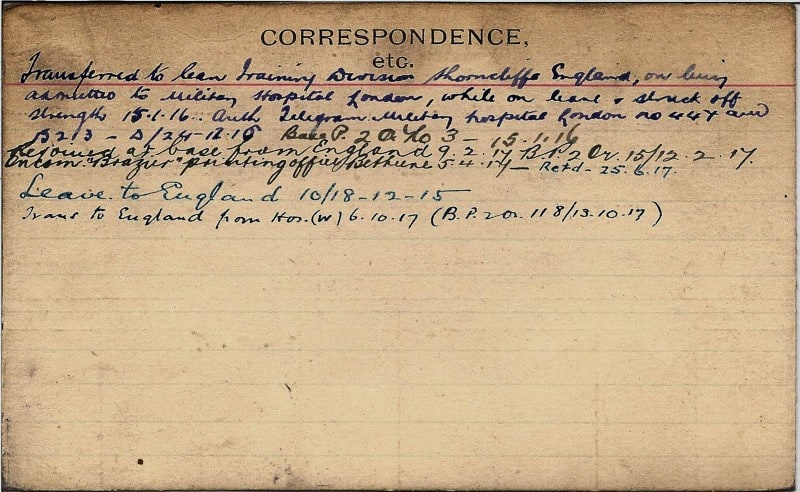 CORRESPONDENCE,
etc.
Transferred to Can Training Division Shorncliffe England, on being
admitted to Military Hospital London, while on leave & struck off
strength 15.1.16. Auth Telegram Military hospital London no 447 and
B213 - D/24-12-15 Base P. 2 O. No 3 - 15.1.16
Rejoined at base from England 9.2.17 B.P.2 Or. 15/12.2.17.
"Brazier" printing office Bethune 5.4.17 - Retd - 25.6.17.
Leave to England 10/18-12-15
Trans to England from Hos. (W) 6.10.17 (B.P. 2 Or. 118/13.10.17)